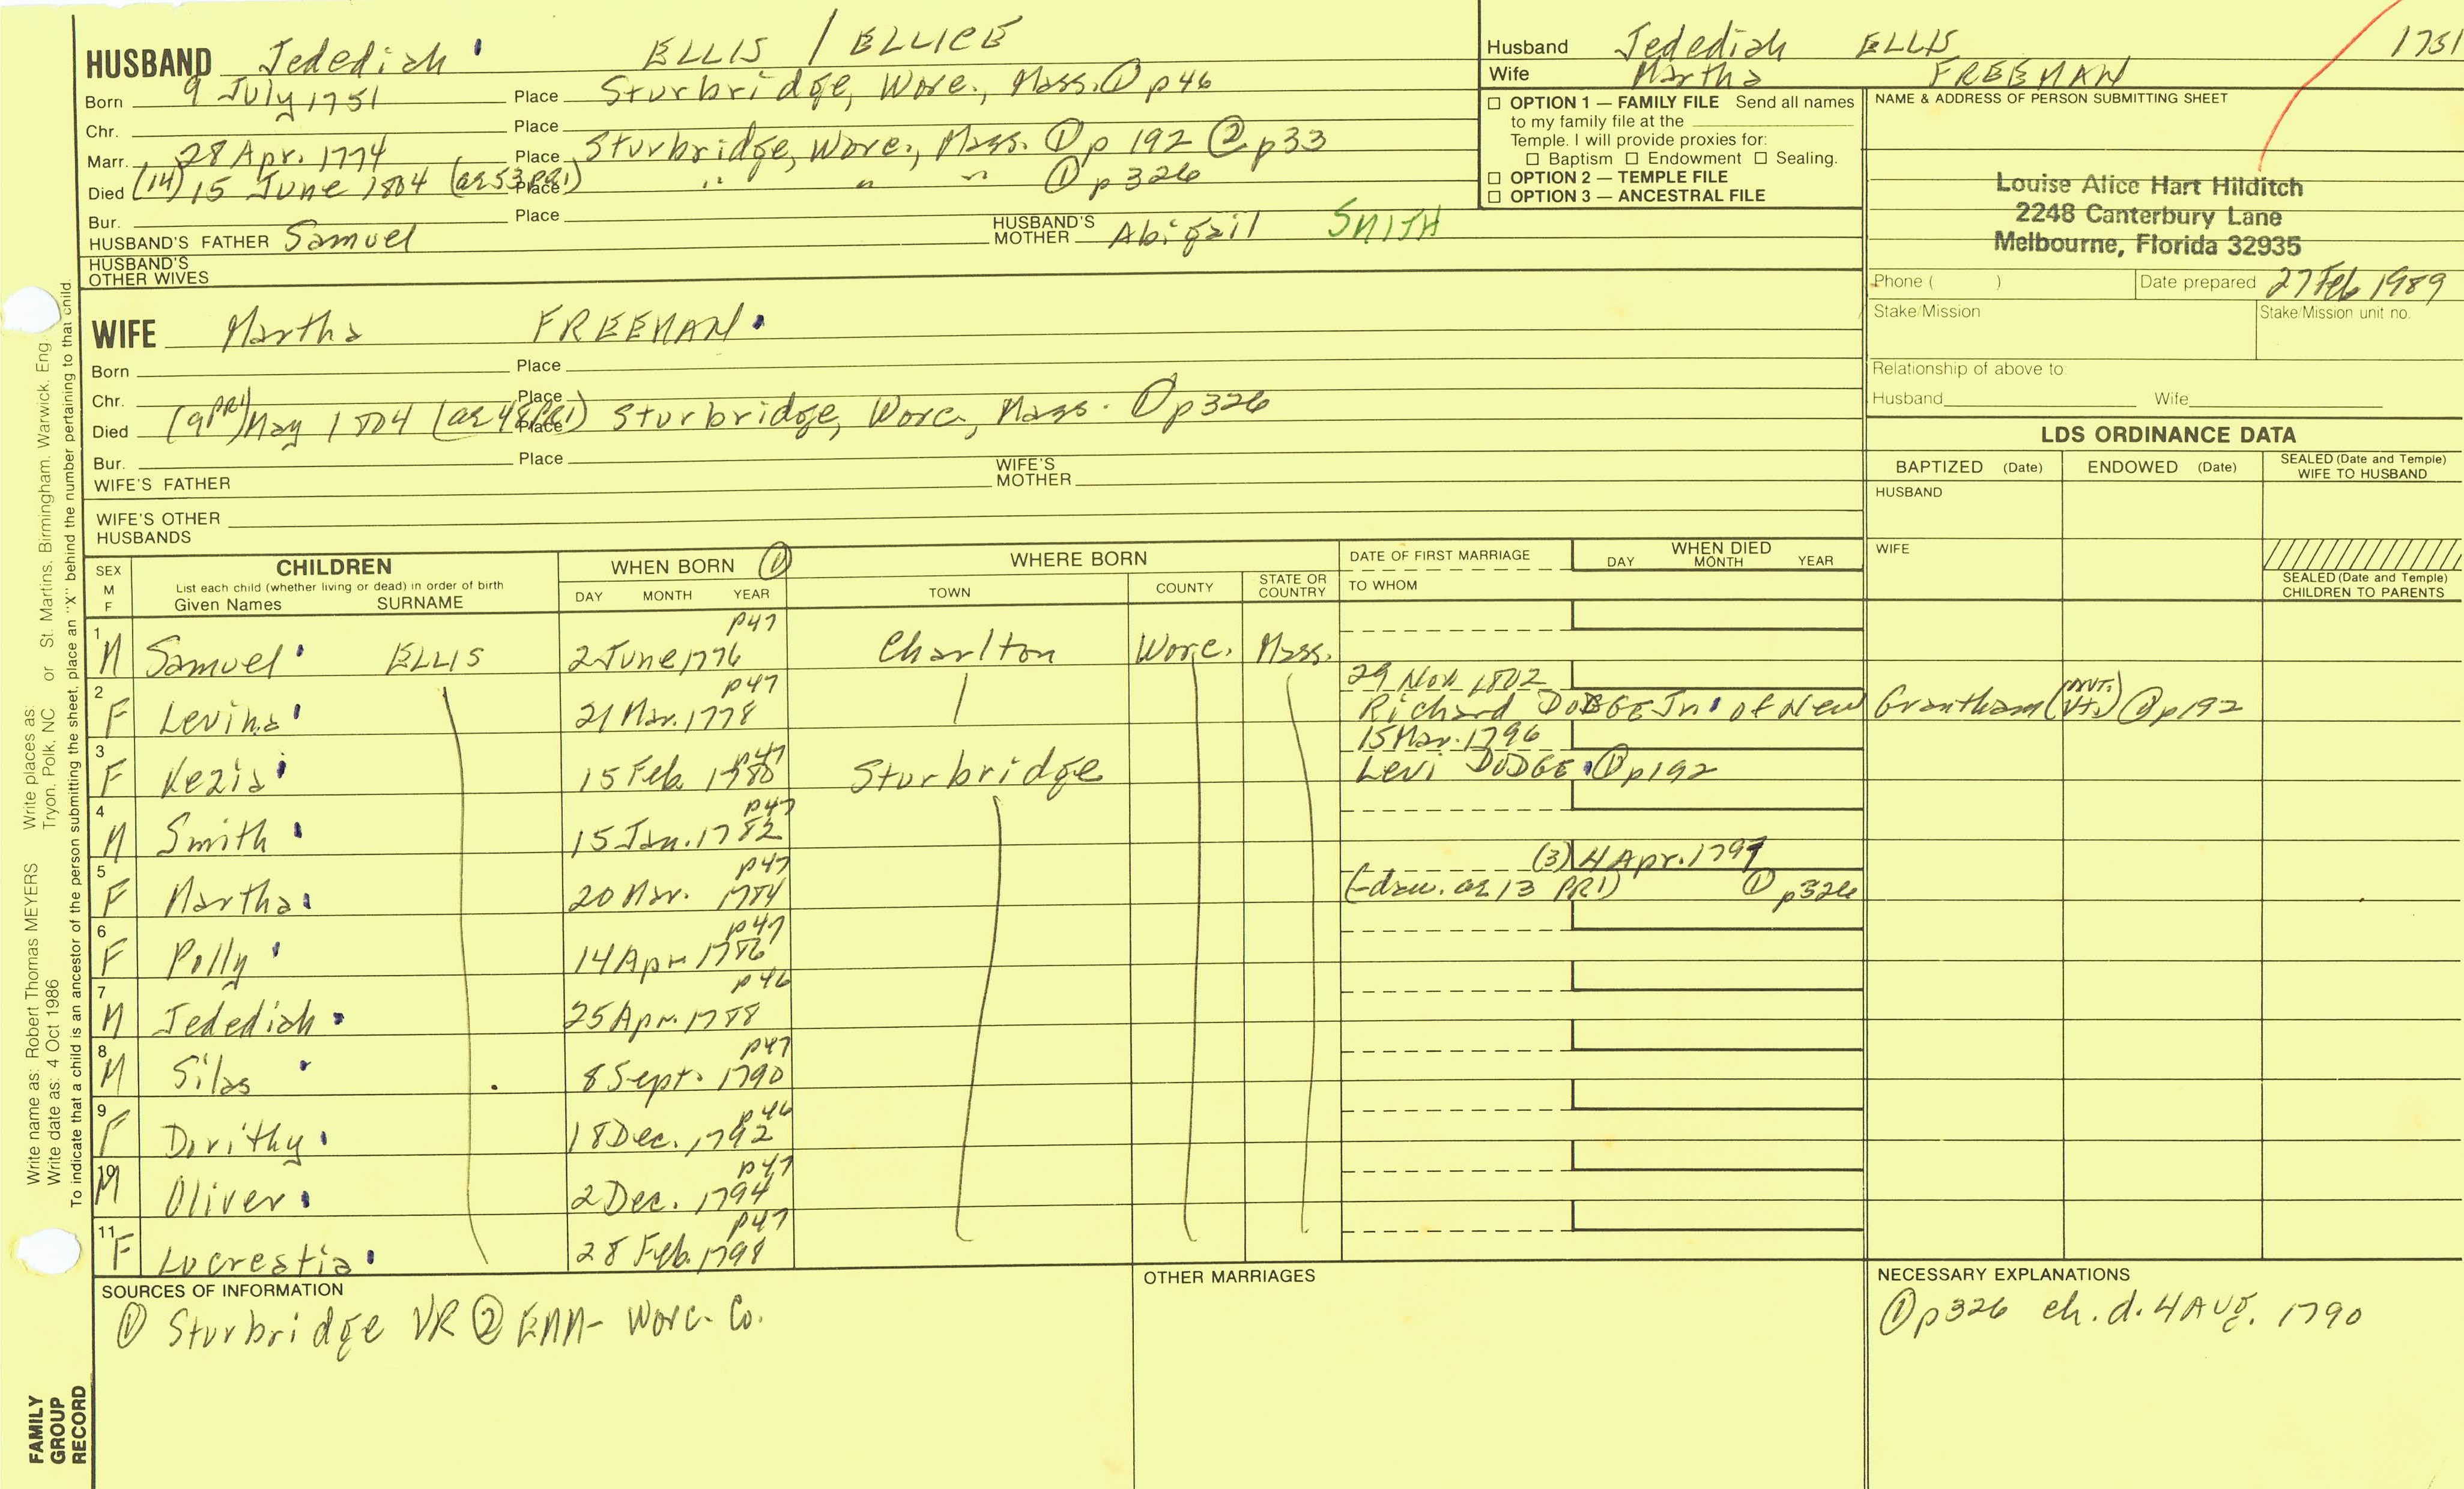 HUSBAND Jedediah ELLIS / ELLICE
Born 9 July 1751 Place Sturbridge, Worc., Mass. ① p46
Chr. Place
Marr. 28 Apr. 1774 Place Sturbridge, Worc., Mass. ① p 192 ② p33
Died (14) 15 June 1804 (ae 53 PR1) Place " " " ① p326
Bur. Place
HUSBAND'S FATHER Samuel HUSBAND'S MOTHER Abigail SMITH
HUSBAND'S OTHER WIVES
WIFE Martha FREEMAN
Born Place
Chr. Place
Died (9 PR1) May 1804 (ae 48 PR1) Place Sturbridge, Worc., Mass. ① p326
Bur. Place
WIFE'S FATHER WIFE'S MOTHER
WIFE'S OTHER HUSBANDS
Husband Jedediah ELLIS 1751
Wife Martha FREEMAN
☐ OPTION 1 — FAMILY FILE Send all names
to my family file at the
Temple. I will provide proxies for:
☐ Baptism ☐ Endowment ☐ Sealing.
☐ OPTION 2 — TEMPLE FILE
☐ OPTION 3 — ANCESTRAL FILE
NAME & ADDRESS OF PERSON SUBMITTING SHEET
Louise Alice Hart Hilditch
2248 Canterbury Lane
Melbourne, Florida 32935
Phone ( ) Date prepared 27 Feb 1989
Stake/Mission Stake/Mission unit no.
Relationship of above to:
Husband Wife
LDS ORDINANCE DATA
BAPTIZED (Date) ENDOWED (Date) SEALED (Date and Temple) WIFE TO HUSBAND
HUSBAND
WIFE
SEALED (Date and Temple) CHILDREN TO PARENTS
SEX M F CHILDREN WHEN BORN ① WHERE BORN DATE OF FIRST MARRIAGE WHEN DIED
List each child (whether living or dead) in order of birth
Given Names SURNAME DAY MONTH YEAR TOWN COUNTY STATE OR COUNTRY TO WHOM DAY MONTH YEAR
1 M Samuel ELLIS 2 June 1776 p47 Charlton Worc. Mass.
2 F Levina 21 Mar. 1778 p47 29 Nov. 1802
Richard DODGE Jn. of New Grantham (Vt.) ① p192
3 F Kezia 15 Feb. 1780 p47 Sturbridge 15 Mar. 1796
Levi DODGE ① p192
4 M Smith 15 Jan. 1782 p47
5 F Martha 20 Mar. 1784 p47 (3) 4 Apr. 1797
(-dau. ae 13 PR1) ① p326
6 F Polly 14 Apr. 1786 p47
7 M Jedediah 25 Apr. 1788 p46
8 M Silas 8 Sept. 1790 p47
9 F Dorithy 18 Dec. 1792 p46
10 M Oliver 2 Dec. 1794 p47
11 F Lucrestia 28 Feb. 1798 p47
SOURCES OF INFORMATION
① Sturbridge VR ② EMM- Worc. Co.
OTHER MARRIAGES
NECESSARY EXPLANATIONS
① p326 ch. d. 4 Aug. 1790
Write name as: Robert Thomas MEYERS Write places as: Tryon, Polk, NC or St. Martins, Birmingham, Warwick, Eng.
Write date as: 4 Oct 1986
To indicate that a child is an ancestor of the person submitting the sheet, place an "X" behind the number pertaining to that child.
FAMILY
GROUP
RECORD